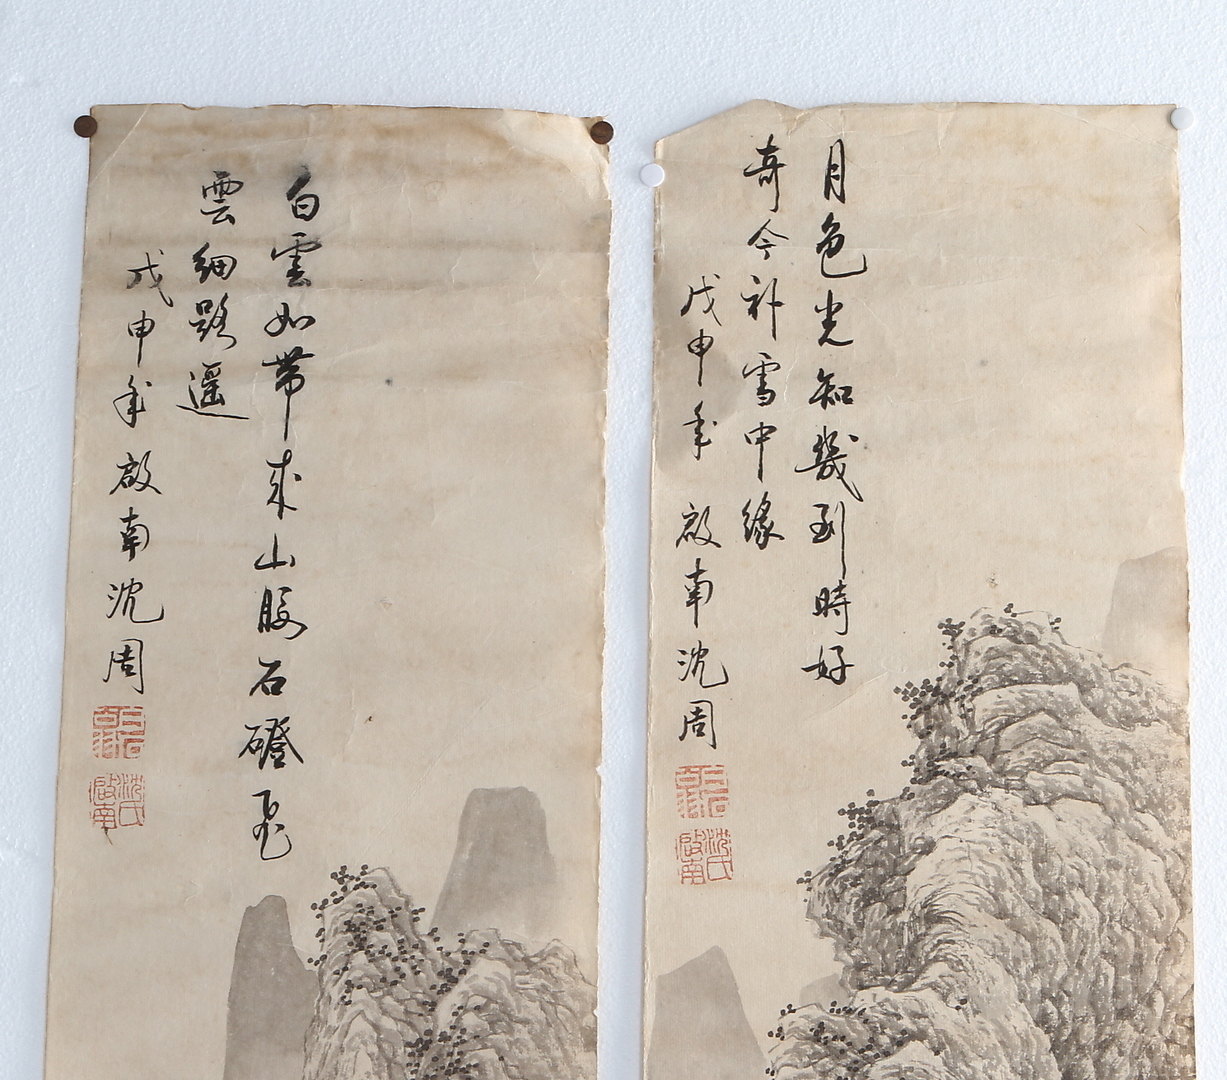 月色光知幾到時好
奇今补雪中緣
戊申年 啟南沈周
白石翁
沈氏啟南
白雲如帶束山腰石磴飛
雲細路遥
戊申年 啟南沈周
白石翁
沈氏啟南